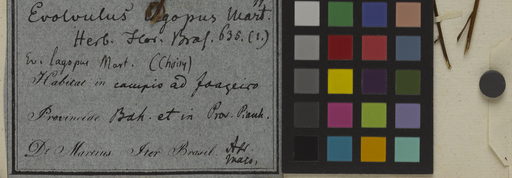 Evolvulus lagopus Mart.
Herb. Flor. Bras. 635. (2.)
Ev. lagopus Mart. (Choisy)
Habitat in campis ad Joazeiro
Provinciae Bah. et in Prov. Piauh.
De Martius Iter Brasil. Apr.